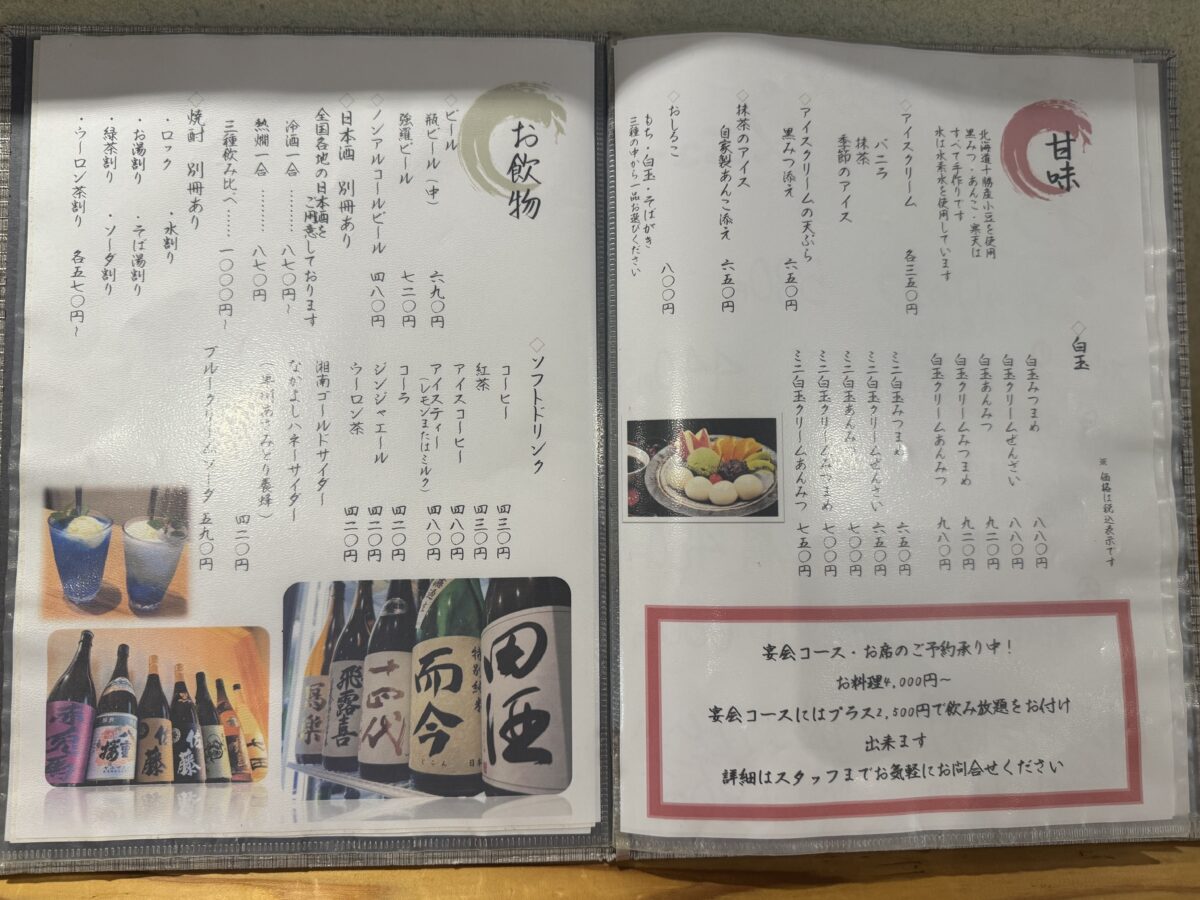 甘味
北海道十勝産小豆を使用
黒みつ・あんこ・寒天は
すべて手作りです
水は水素水を使用しています
◇アイスクリーム 各三五〇円
バニラ
抹茶
季節のアイス
◇アイスクリームの天ぷら
黒みつ添え 六五〇円
抹茶のアイス
自家製あんこ添え 六五〇円
◇おしるこ 八〇〇円
もち・白玉・そばがき
三種の中から一品お選びください
※価格は税込表示です
◇白玉
白玉みつまめ 八八〇円
白玉クリームぜんざい 八八〇円
白玉あんみつ 九二〇円
白玉クリームみつまめ 九二〇円
白玉クリームあんみつ 九八〇円
ミニ白玉みつまめ 六五〇円
ミニ白玉クリームぜんざい 六五〇円
ミニ白玉あんみつ 七〇〇円
ミニ白玉クリームみつまめ 七〇〇円
ミニ白玉クリームあんみつ 七五〇円
宴会コース・お席のご予約承り中！
お料理4,000円～
宴会コースにはプラス2,500円で飲み放題をお付け
出来ます
詳細はスタッフまでお気軽にお問合せください
お飲物
◇ビール
瓶ビール（中） 六九〇円
強羅ビール 七二〇円
◇ノンアルコールビール 四八〇円
◇日本酒 別冊あり
全国各地の日本酒を
ご用意しております
冷酒一合 ………… 八七〇円～
熱燗一合 ………… 八七〇円
三種飲み比べ …… 一〇〇〇円～
◇焼酎 別冊あり
・ロック ・水割り
・お湯割り ・そば湯割り
・緑茶割り ・ソーダ割り
・ウーロン茶割り 各五七〇円～
◇ソフトドリンク
コーヒー 四三〇円
紅茶 四三〇円
アイスコーヒー 四八〇円
アイスティー 四八〇円
（レモンまたはミルク）
コーラ 四二〇円
ジンジャエール 四二〇円
ウーロン茶 四二〇円
湘南ゴールドサイダー
なかよしハネーサイダー 四二〇円
ブルークリームソーダ 五九〇円
田酒
特別純米
而今
十四代
飛露喜
寫樂
八重桜
佐藤
佐藤